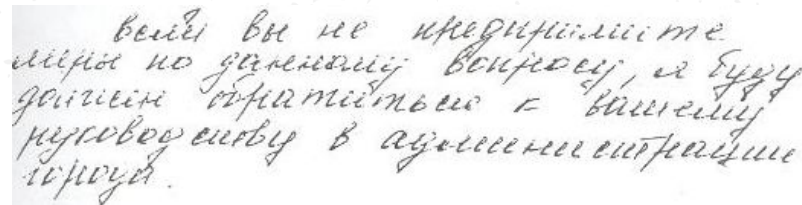 Если вы не предпримите
меры по данному вопросу, я буду
должен обратиться к вашему
руководству в администрации
города.